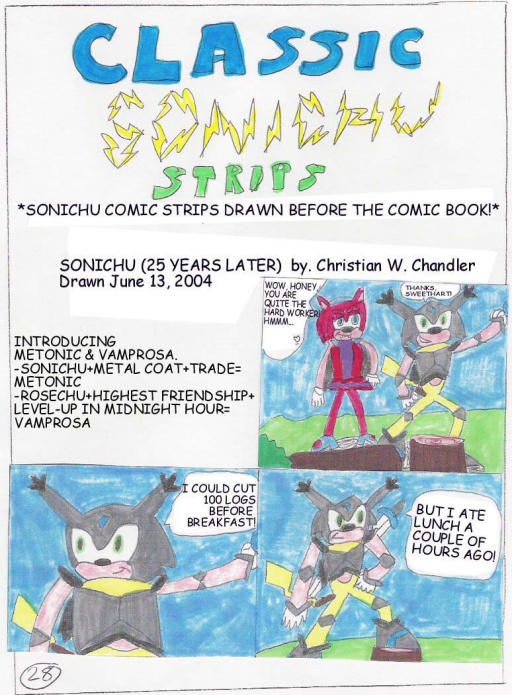 CLASSIC
SONICHU
STRIPS
*SONICHU COMIC STRIPS DRAWN BEFORE THE COMIC BOOK!*
SONICHU (25 YEARS LATER) by. Christian W. Chandler
Drawn June 13, 2004
INTRODUCING
METONIC & VAMPROSA.
-SONICHU+METAL COAT+TRADE=
METONIC
-ROSECHU+HIGHEST FRIENDSHIP+
LEVEL-UP IN MIDNIGHT HOUR=
VAMPROSA
WOW, HONEY,
YOU ARE
QUITE THE
HARD WORKER!
HMMM...
THANKS,
SWEETHART!
I COULD CUT
100 LOGS
BEFORE
BREAKFAST!
BUT I ATE
LUNCH A
COUPLE OF
HOURS AGO!
28